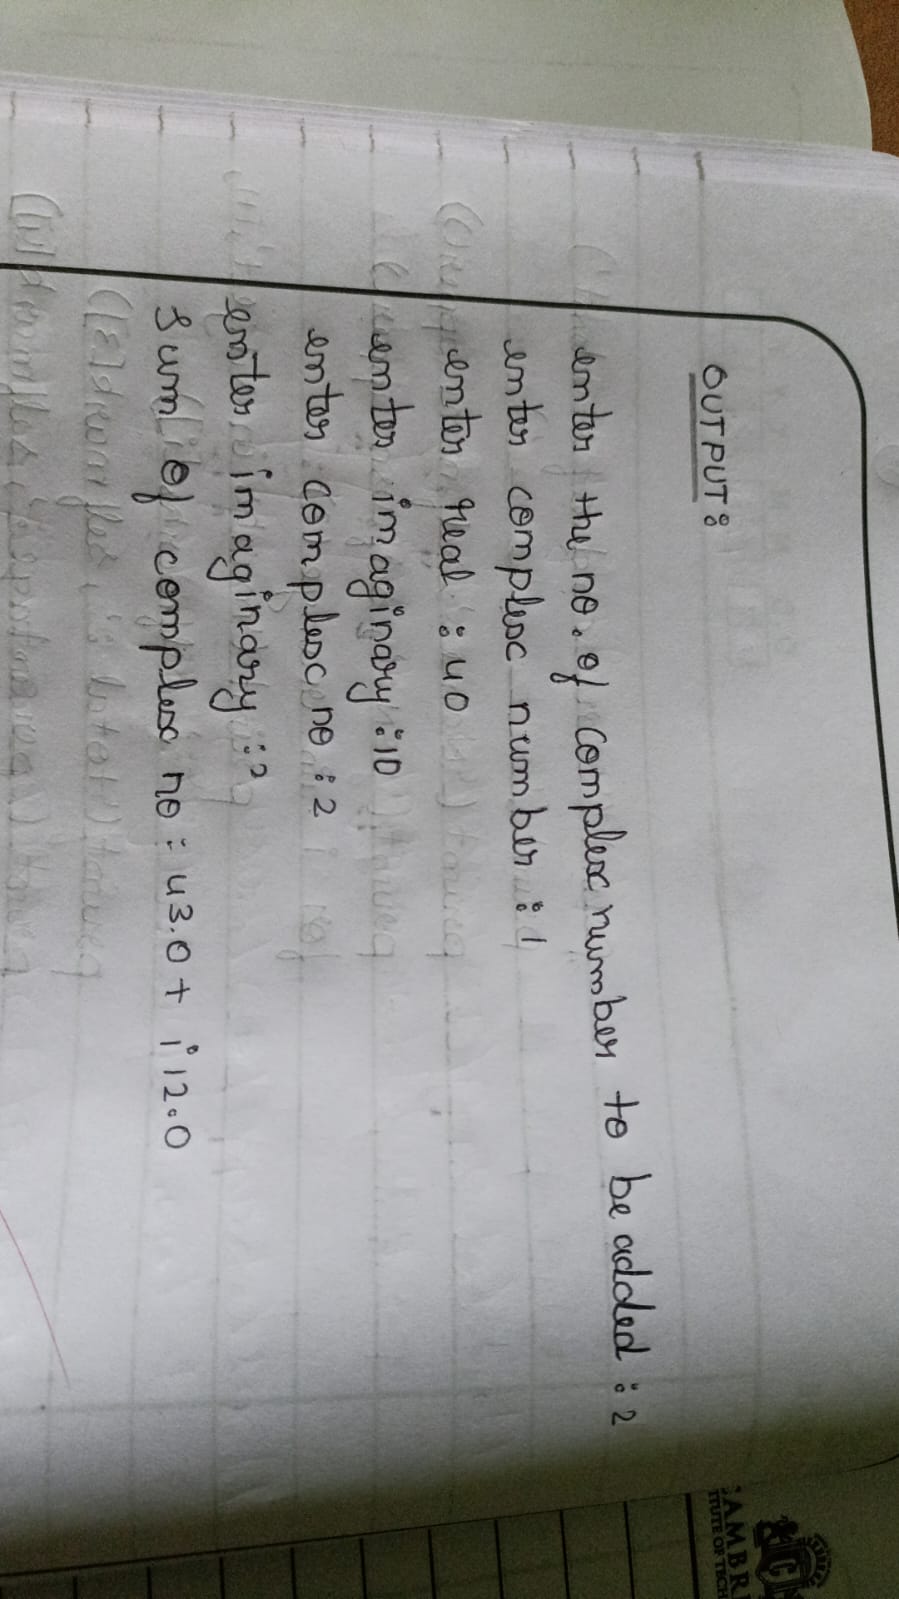 OUTPUT:
enter the no. of complex number to be added : 2
enter complex number : 1
enter real : 40
enter imaginary : 10
enter complex no : 2
enter imaginary : 2
Sum of complex no : 43.0 + i 12.0
CAMBRI
ITUTE OF TECH